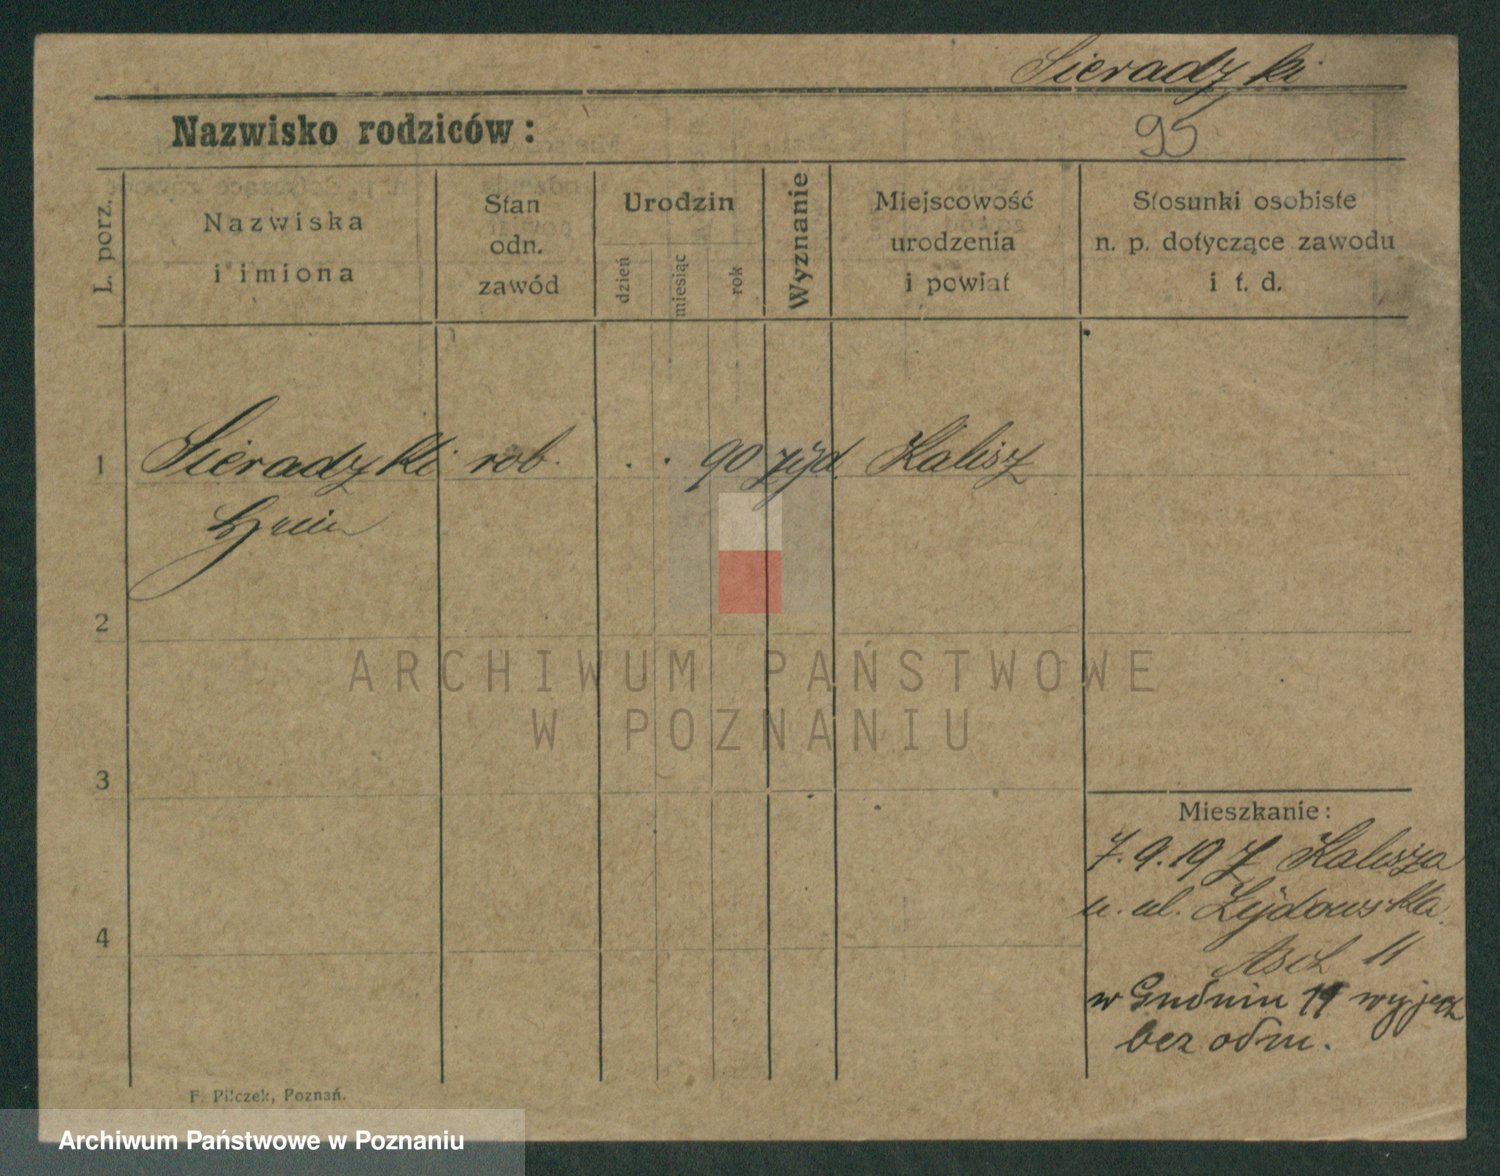 Sieradzki
95
Nazwisko rodziców:
L. porz.
Nazwiska
i imiona
Stan
odn.
zawód
Urodzin
dzień
miesiąc
rok
Wyznanie
Miejscowość
urodzenia
i powiat
Stosunki osobiste
n. p. dotyczące zawodu
i t. d.
1 Sieradzki rob. . . 90 żyd. Kalisz
2
3
4
Mieszkanie:
7.9.19 z Kalisza
u. ul. Żydowska
11
w Grudniu 19 wyjech
bez odm.
F. Pilczek, Poznań.
ARCHIWUM PAŃSTWOWE
W POZNANIU
Archiwum Państwowe w Poznaniu